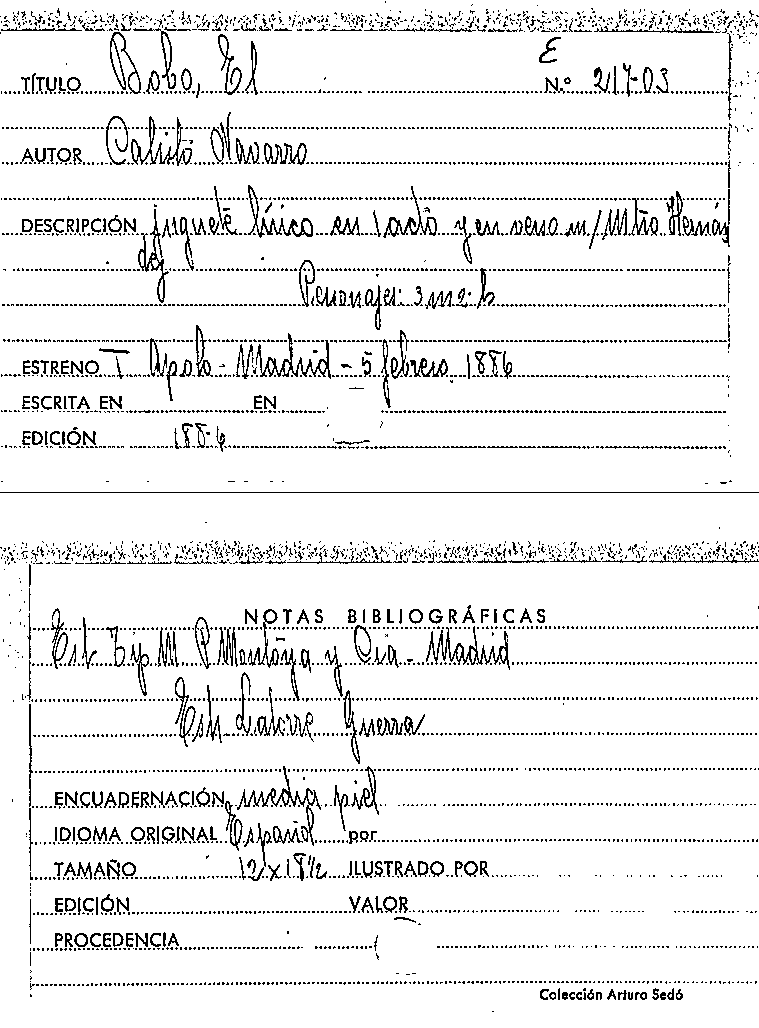 E
TÍTULO Bobo, El N.º 217-03
AUTOR Calisto Navarro
DESCRIPCIÓN juguete lírico en 1 acto y en verso m/Mtro Hernán
dez
Personajes: 3 m 2 h
ESTRENO T Apolo - Madrid - 5 febrero 1886
ESCRITA EN EN
EDICIÓN 1886
NOTAS BIBLIOGRÁFICAS
Est. Tip M P Montoya y Cia - Madrid
Latorre Guerra
ENCUADERNACIÓN media piel
IDIOMA ORIGINAL Español por
TAMAÑO 12 x 18½ ILUSTRADO POR
EDICIÓN VALOR
PROCEDENCIA
Colección Arturo Sedó